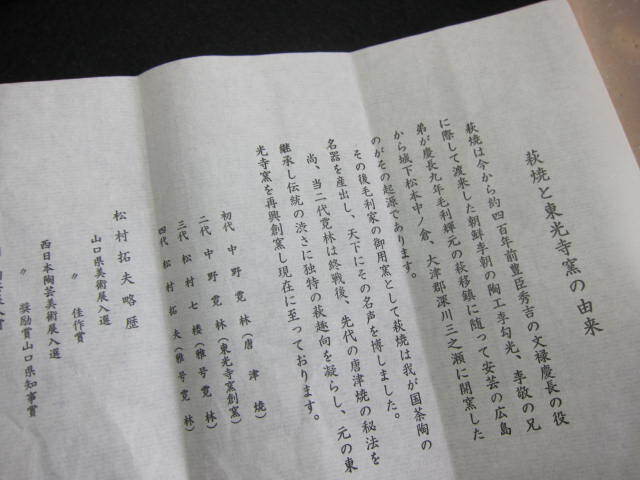 萩焼と東光寺窯の由来
萩焼は今から約四百年前豊臣秀吉の文禄慶長の役
に際して渡来した朝鮮李朝の陶工李勺光、李敬の兄
弟が慶長九年毛利輝元の萩移鎮に随って安芸の広島
から城下松本中ノ倉、大津郡深川三之瀬に開窯した
のがその起源であります。
その後毛利家の御用窯として萩焼は我が国茶陶の
名器を産出し、天下にその名声を博しました。
尚、当二代寛林は終戦後、先代の唐津焼の秘法を
継承し伝統の渋さに独特の萩趣向を凝らし、元の東
光寺窯を再興創窯し現在に至っております。
初代 中野寛林(唐津焼)
二代 中野寛林(東光寺窯創窯)
三代 松村七楼(雅号寛林)
四代 松村拓夫(雅号寛林)
松村拓夫略歴
山口県美術展入選
〃 佳作賞
西日本陶芸美術展入選
〃 奨励賞山口県知事賞